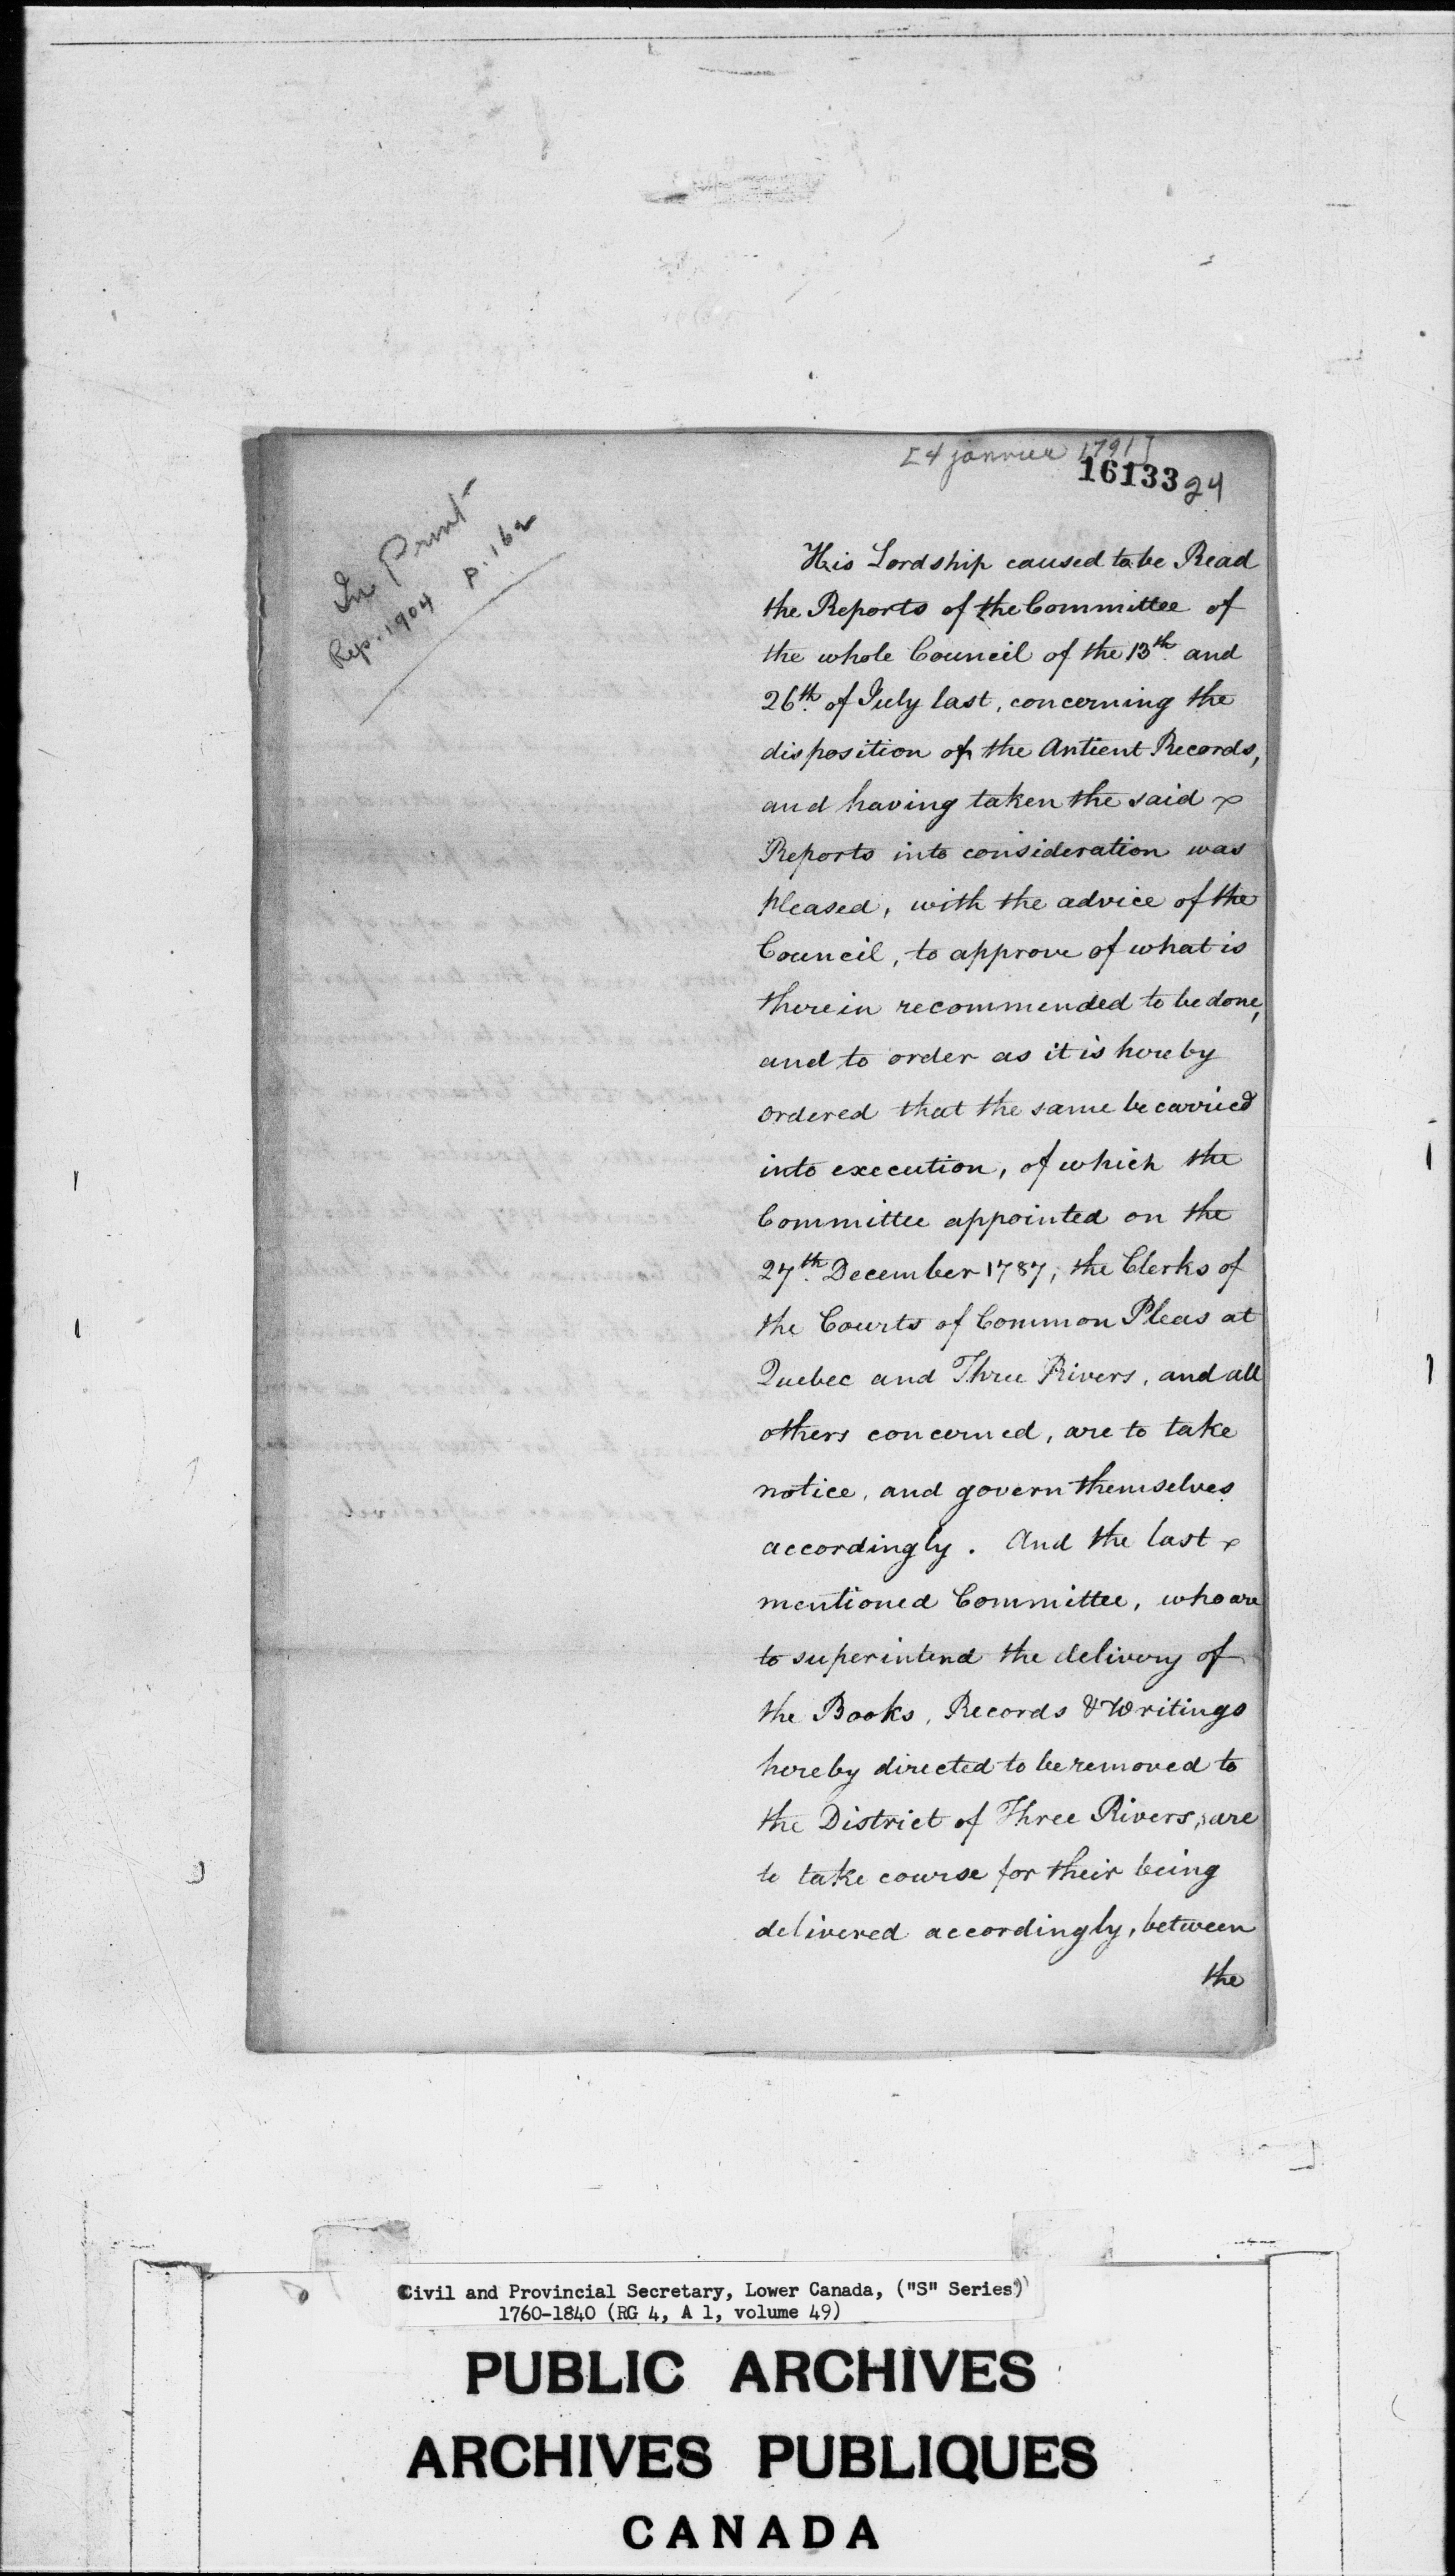 [4 janvier 1791]
16133 24
In Print
Rep. 1904 p. 162
His Lordship caused to be Read
the Reports of the Committee of
the whole Council of the 13th. and
26th. of July last, concerning the
disposition of the Antient Records,
and having taken the said
Reports into consideration was
pleased, with the advice of the
Council, to approve of what is
therein recommended to be done,
and to order as it is hereby
ordered that the same be carried
into execution, of which the
Committee appointed on the
27th. December 1787, the Clerks of
the Courts of Common Pleas at
Quebec and Three Rivers, and all
others concerned, are to take
notice, and govern themselves
accordingly. And the last
mentioned Committee, who are
to superintend the delivery of
the Books, Records & Writings
hereby directed to be removed to
the District of Three Rivers, are
to take course for their being
delivered accordingly, between
the
Civil and Provincial Secretary, Lower Canada, ("S" Series)
1760-1840 (RG 4, A 1, volume 49)
PUBLIC ARCHIVES
ARCHIVES PUBLIQUES
CANADA